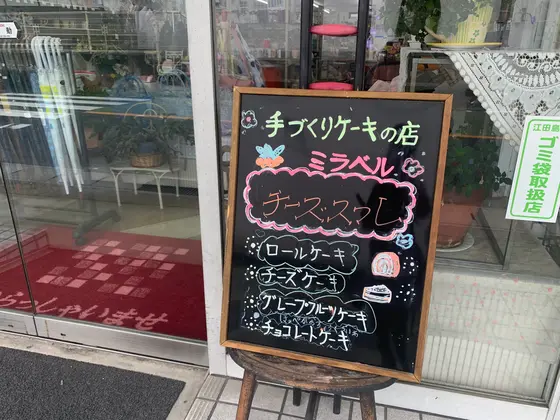 手づくりケーキの店
ミラベル
チーズスフレ
ロールケーキ
チーズケーキ
グレープフルーツケーキ
チョコレートケーキ
らっしゃいませ
江田島
ゴミ袋取扱店